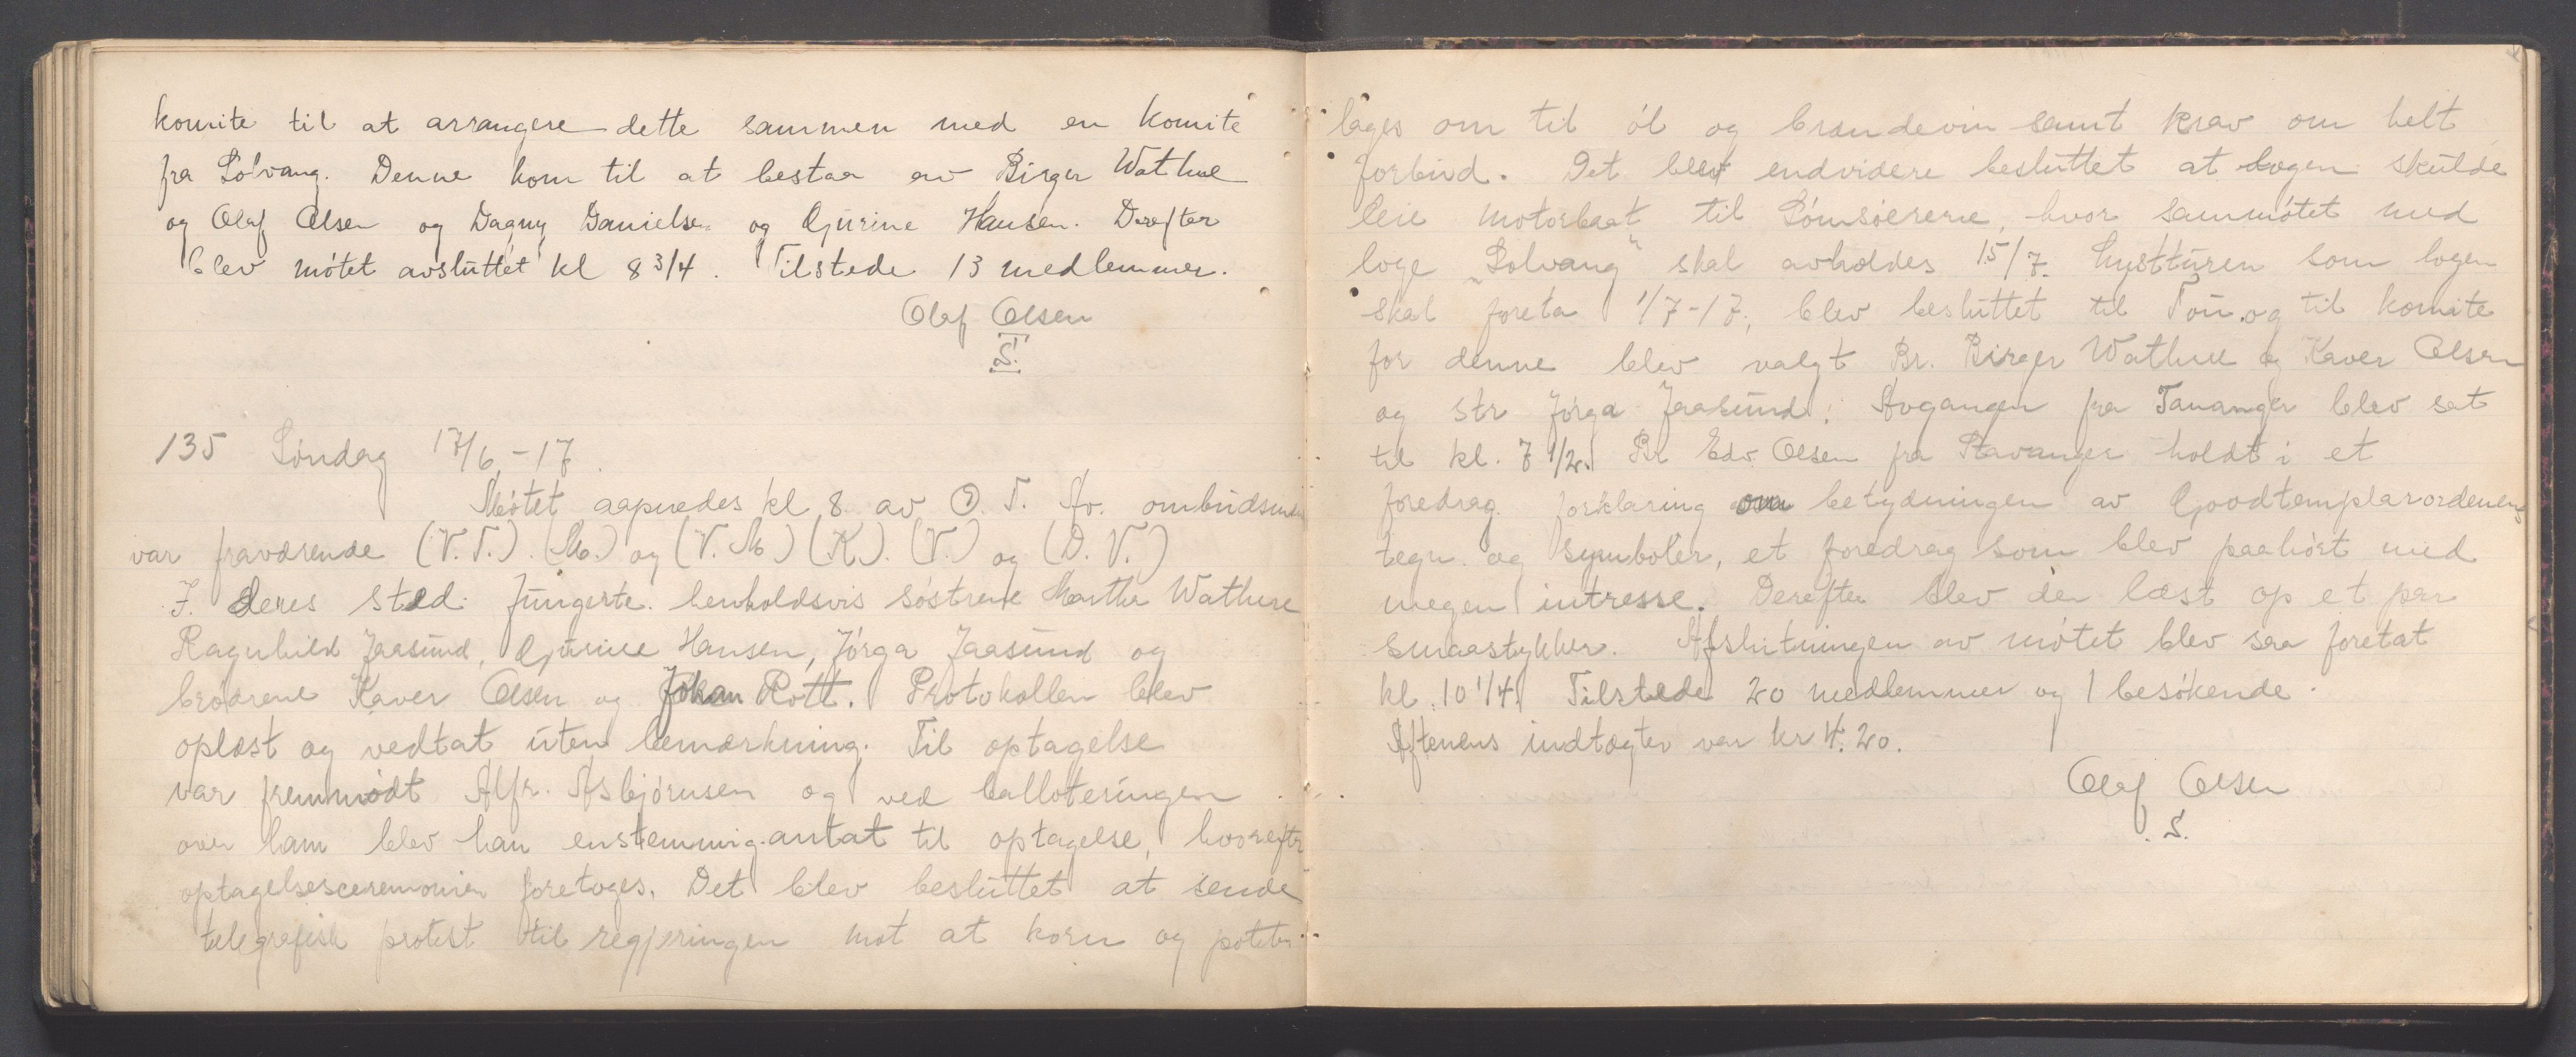 komite til at arrangere dette sammen med en komite
fra Solvang. Denne kom til at bestaa av Birger Wathne
og Olaf Olsen og Dagny Danielsen og Gjurine Hansen. Derefter
blev møtet avsluttet kl 8 3/4. Tilstede 13 medlemmer.
Olaf Olsen
S.
135 Søndag 17/6.-17.
Møtet aapnedes kl 8 av O. T. Av. ombudsmænd
var fraværende (V.T.). (M.) og (V.M) (K). (V.) og (D.V.)
I. deres sted fungerte henholdsvis søstrene Marthe Wathne
Ragnhild Jaasund, Gjurine Hansen, Jørga Jaasund og
brødrene Kaver Olsen og Johan Rott. Protokollen blev
oplæst og vedtat uten bemærkning. Til optagelse
var fremmødt Alfr. Asbjørnsen og ved balloteringen
over ham blev han enstemmig antat til optagelse, hvorefter
optagelsesceremonien foretoges. Det blev besluttet at sende
telegrafisk protest til regjeringen mot at korn og poteter
lages om til øl og brændevin samt krav om helt
forbud. Det blev endvidere besluttet at logen skulde
leie motorbaat til Sømsøerene, hvor sammøtet med
loge „Solvang" skal avholdes 15/7. Lystturen som logen
skal foreta 1/7-17, blev besluttet til Tou. og til komite
for denne blev valgt Br. Birger Wathne og Kaver Olsen
og str Jørga Jaasund. Avgangen fra Tananger blev sat
til kl. 7 1/2. Br Edv. Olsen fra Stavanger holdt i et
foredrag forklaring om betydningen av Goodtemplarordenens
tegn og symboler, et foredrag som blev paahørt med
megen intresse. Derefter blev der læst op et par
smaastykker. Afslutningen av møtet blev saa foretat
kl. 10 1/4. Tilstede 20 medlemmer og 1 besøkende.
Aftenens indtægter var kr 4.20.
Olaf Olsen
S.